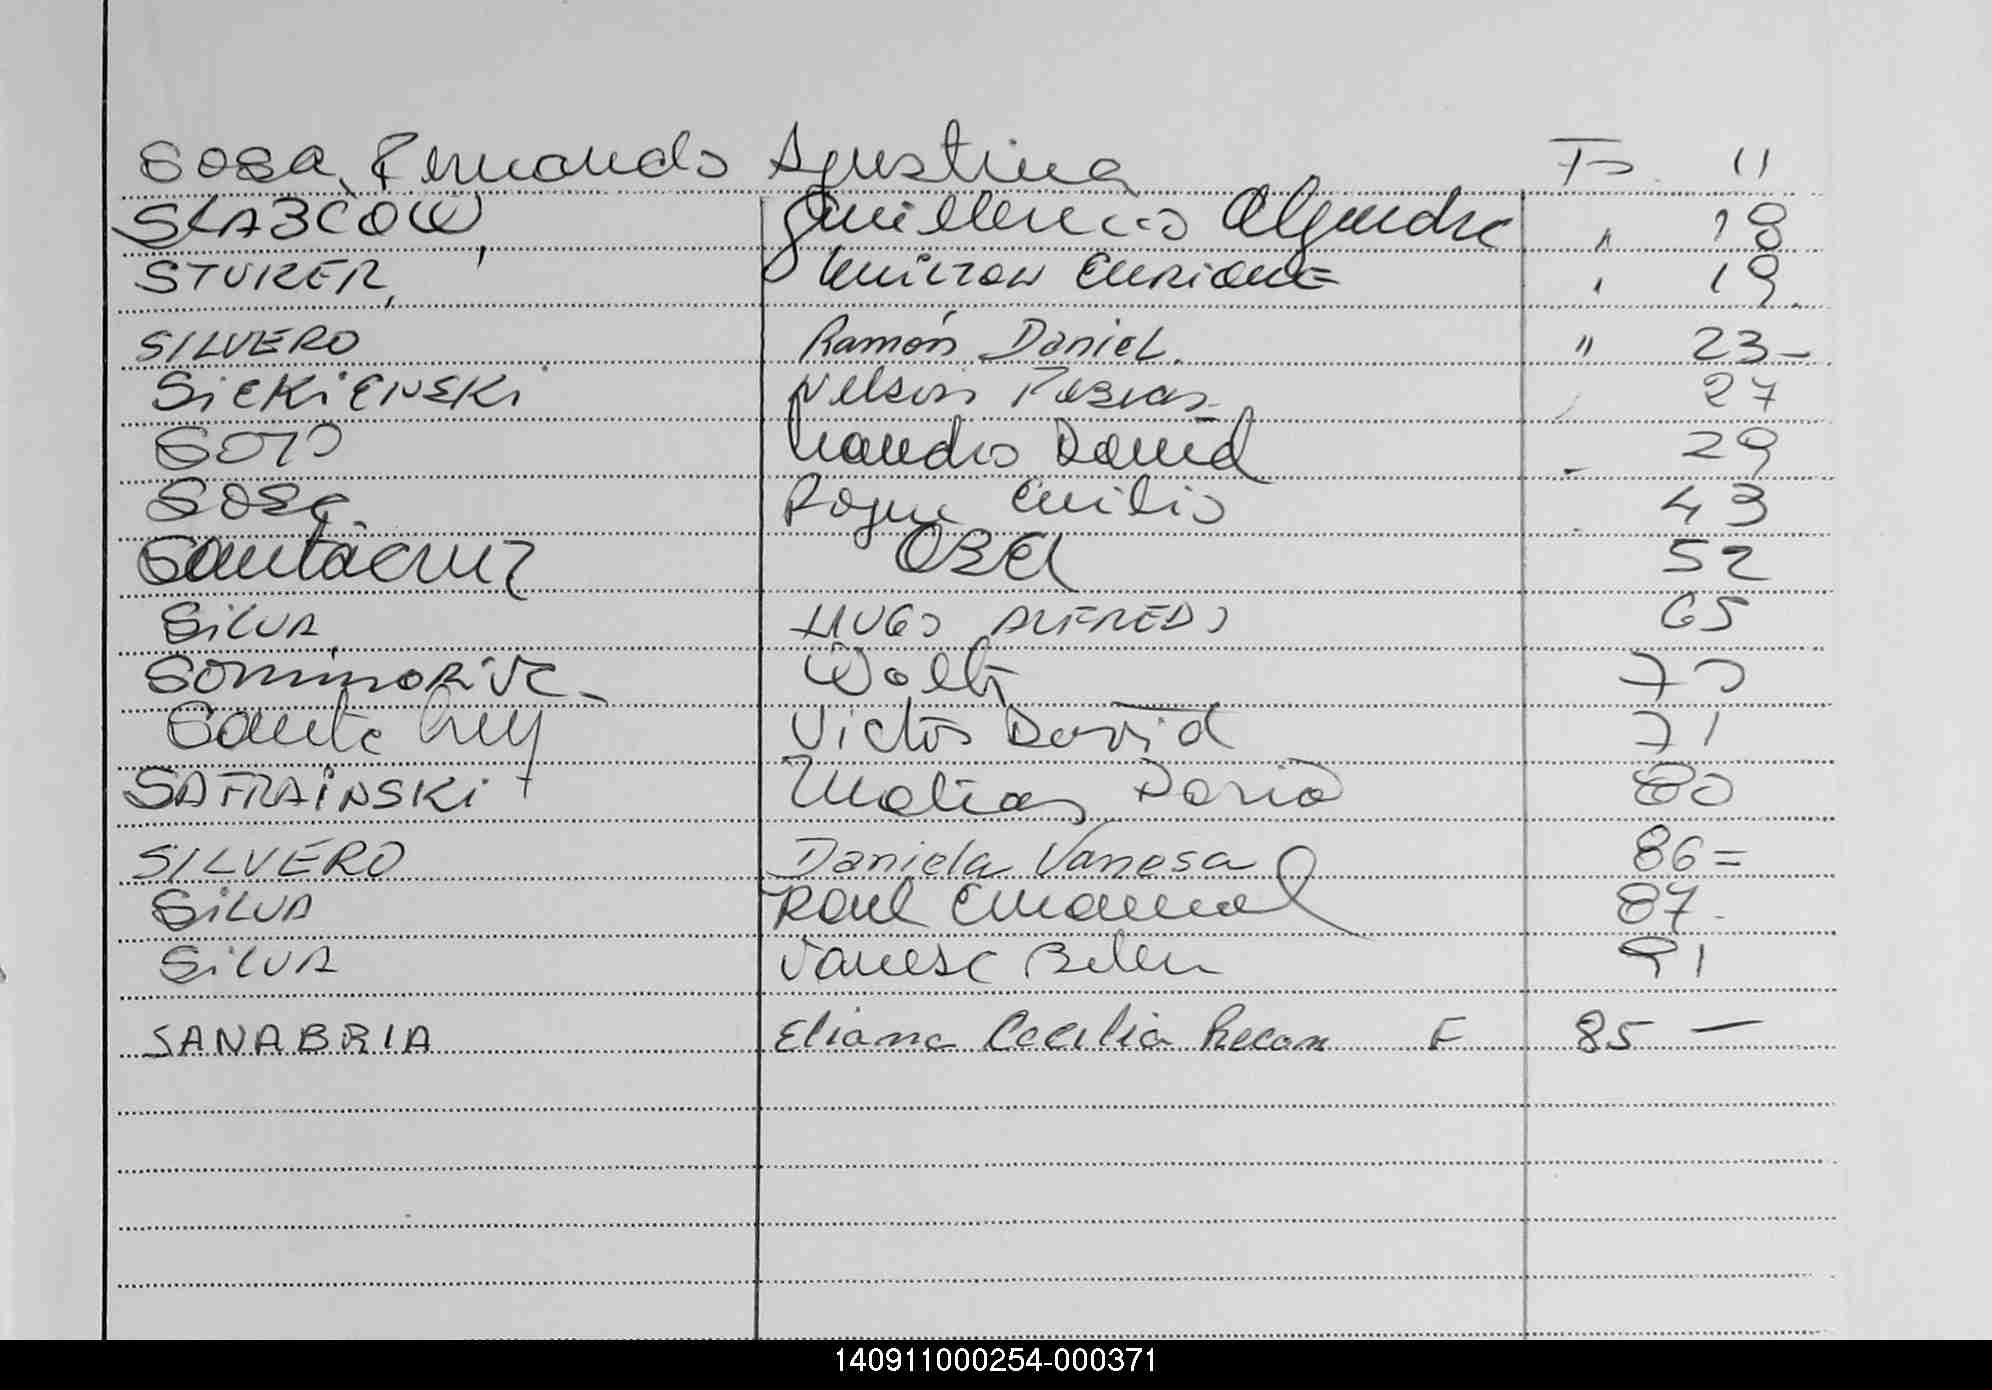 Sosa, Fernando Agustina Fo. 11
SLABCOW, Guillermo Alejandro " 18
STURER, Milton ENRIQUE " 19
SILVERO Ramón Daniel. " 23-
SiEKiENSKi Nelson Fabian 27
SOTO Claudio David 29
SOSA Roque Emilio 43
Santacruz OBEl 52
SiLVA HUGO ALFREDO 65
Walter 70
Santa Cruz Victor David 71
SAFRAiNSKi Matias Dario 80
SILVERO Daniela Vanesa 86=
SiLVA Raul Emanuel 87-
SiLVA Vanesa Belen 91
SANABRIA Eliana Cecilia F 85 —
140911000254-000371